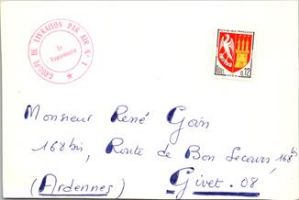 GROUPE DE LIVRAISON PAR AIR N° 1
Le
Vaguemestre
0,12
Monsieur René Goin
168 bis, Route de Bon Secours 168 b
(Ardennes) Givet. 08